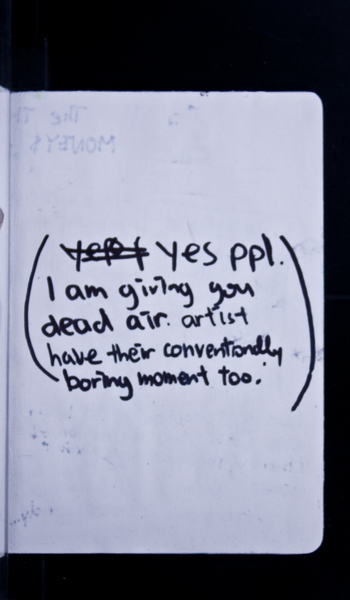 (yes ppl.
I am giving you
dead air. artist
have their conventionally
boring moment too.)